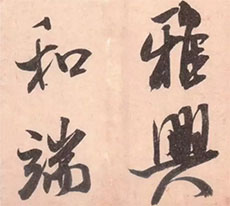 雅興
和端